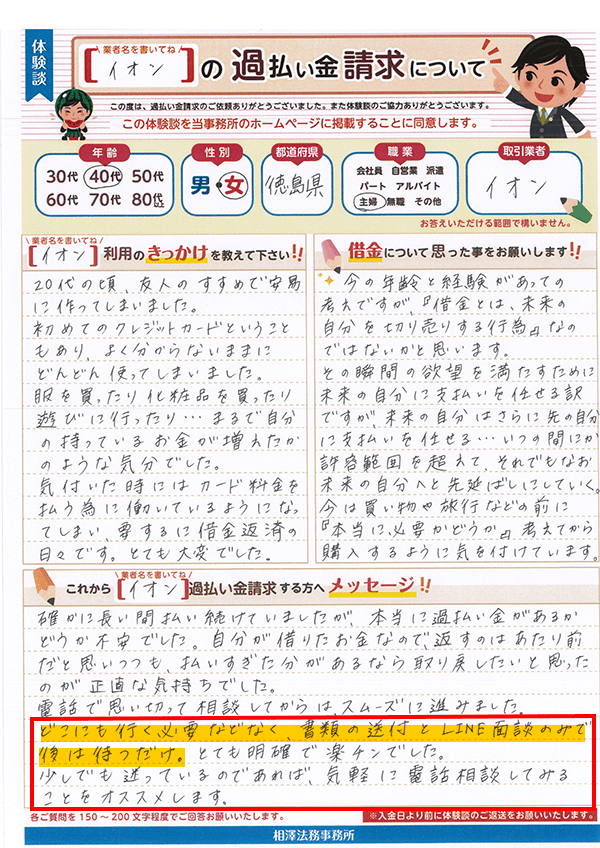 体験談
業者名を書いてね
[イオン]の過払い金請求について
この度は、過払い金請求のご依頼ありがとうございました。また体験談のご協力ありがとうございます。
この体験談を当事務所のホームページに掲載することに同意します。
年齢
30代 40代 50代
60代 70代 80代
性別
男・女
都道府県
徳島県
職業
会社員 自営業 派遣
パート アルバイト
主婦 無職 その他
取引業者
イオン
お答えいただける範囲で構いません。
業者名を書いてね
[イオン]利用のきっかけを教えて下さい!!
20代の頃、友人のすすめで安易
に作ってしまいました。
初めてのクレジットカードということ
もあり、よく分からないままに
どんどん使ってしまいました。
服を買ったり化粧品を買ったり
遊びに行ったり…まるで自分
の持っているお金が増えたか
のような気分でした。
気付いた時にはカード料金を
払う為に働いているようになっ
てしまい、要するに借金返済の
日々です。とても大変でした。
借金について思った事をお願いします!!
今の年齢と経験があっての
考えですが、『借金とは、未来の
自分を切り売りする行為』なの
ではないかと思います。
その瞬間の欲望を満たすために
未来の自分に支払いを任せる訳
ですが、未来の自分はさらに先の自分
に支払いを任せる…いつの間にか
許容範囲を超えて、それでもなお
未来の自分へと先延ばしにしていく。
今は買い物や旅行などの前に
『本当に必要かどうか』考えてから
購入するように気を付けています。
業者名を書いてね
これから[イオン]過払い金請求する方へメッセージ!!
確かに長い間払い続けていましたが、本当に過払い金があるか
どうか不安でした。自分が借りたお金なので、返すのはあたり前
だと思いつつも、払いすぎた分があるなら取り戻したいと思った
のが正直な気持ちでした。
電話で思い切って相談してからは、スムーズに進みました。
どこにも行く必要などなく、書類の送付とLINE面談のみで
後は待つだけ。とても明確で楽チンでした。
少しでも迷っているのであれば、気軽に電話相談してみる
ことをオススメします。
各ご質問を150～200文字程度でご回答お願いします。
※入金日より前に体験談のご返送をお願いいたします。
相澤法務事務所